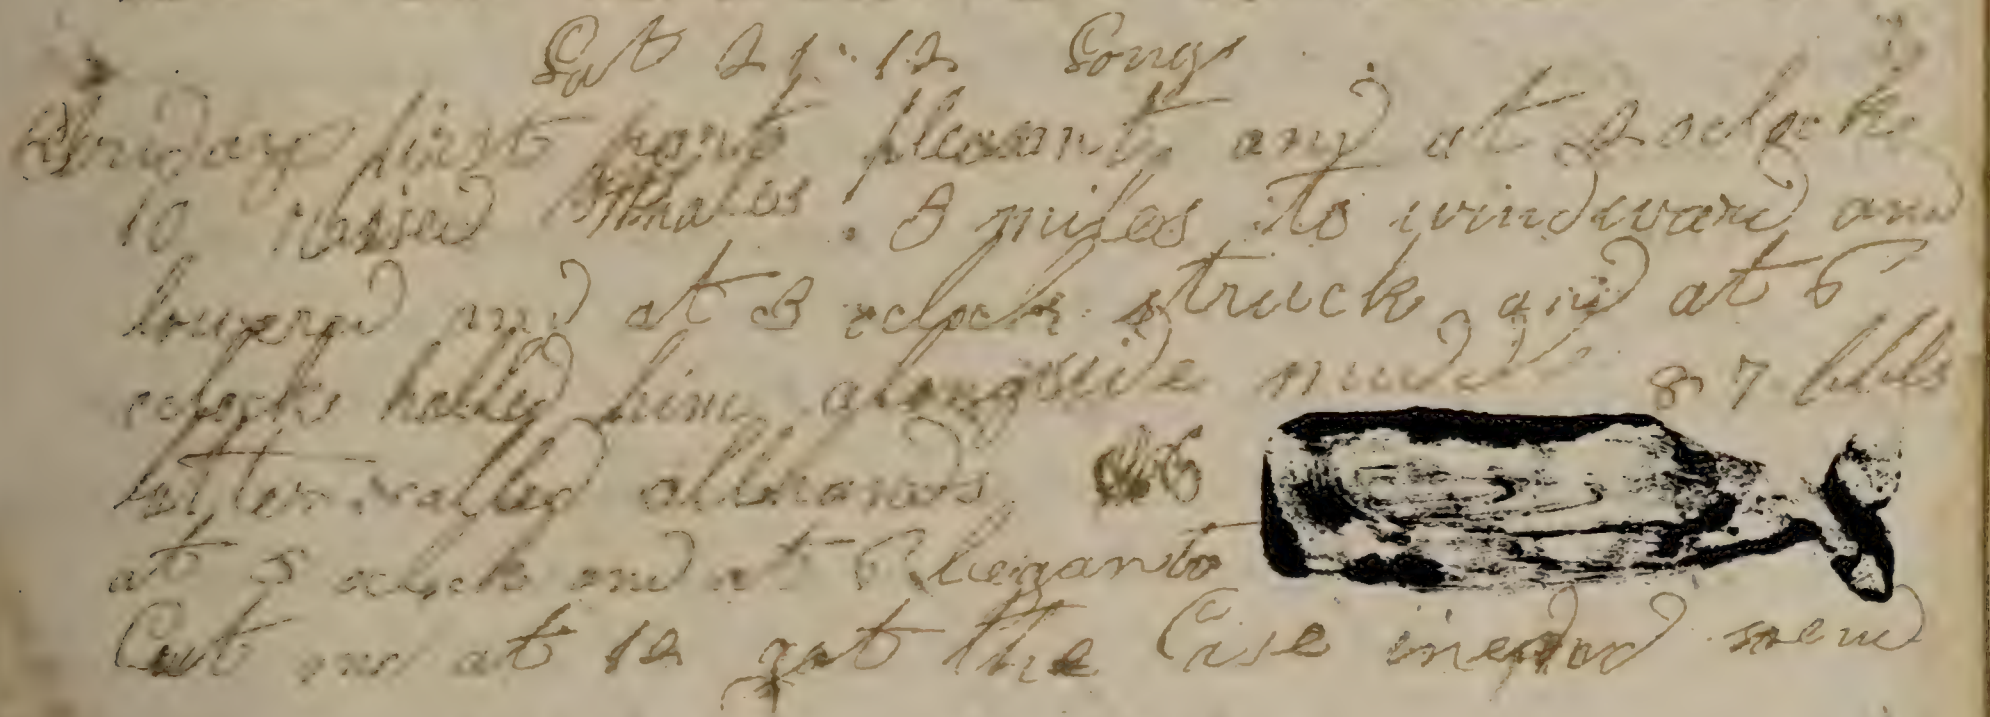 Lat 21.12 Long
first part pleasant and at 2 oclock
10 Raised Whales 3 miles to windward and
lowered and at 3 oclock struck and at 6
oclock halled him alongside 87 bbls
called allhands
at 5 oclock and at 6 began to
Cut and at 12 got the Case